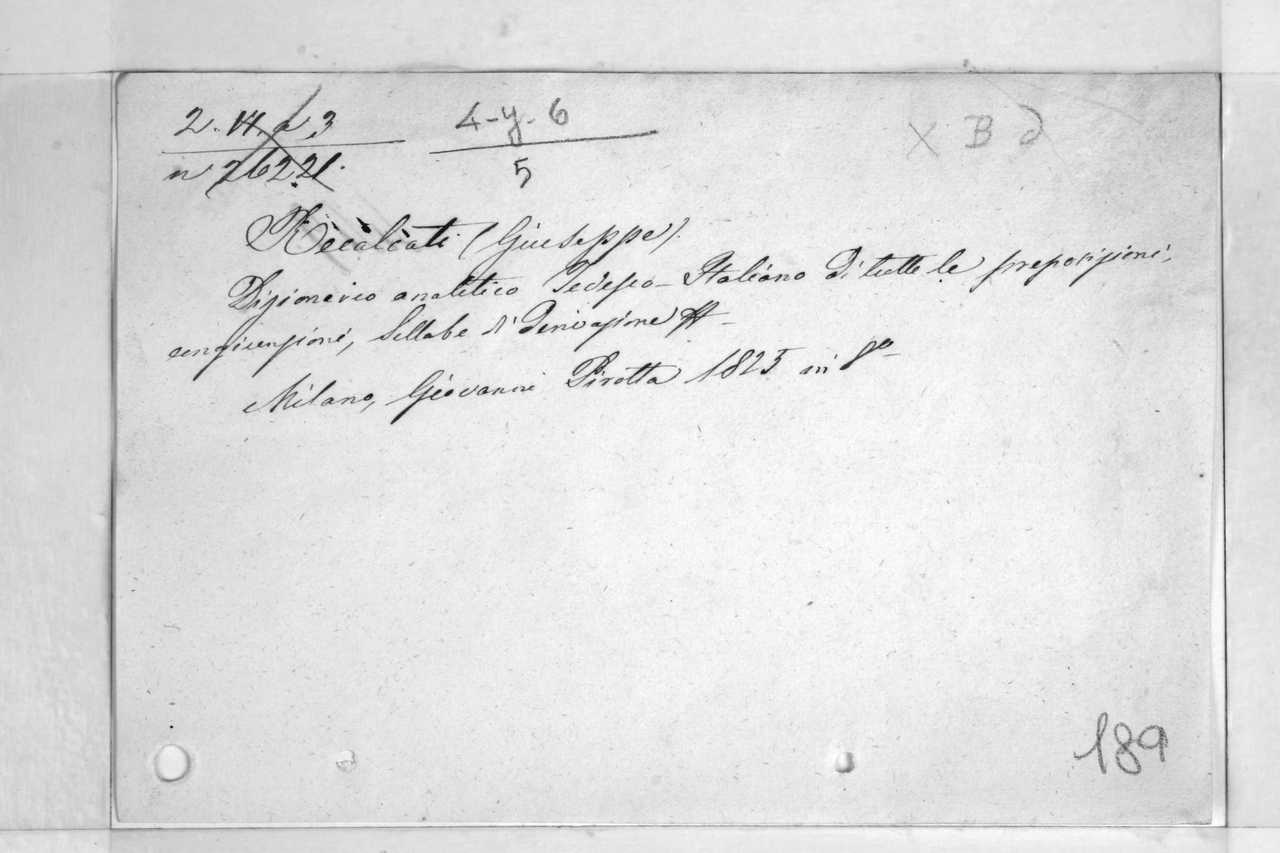 2. 14. d. 3
4-y-6
X B d
n 26221.
5
Recalcati (Giuseppe).
Dizionario analitico Tedesco-Italiano di tutte le preposizioni,
congiunzioni, Sillabe di derivazione
Milano, Giovanni Pirotta 1825 in 8°
189